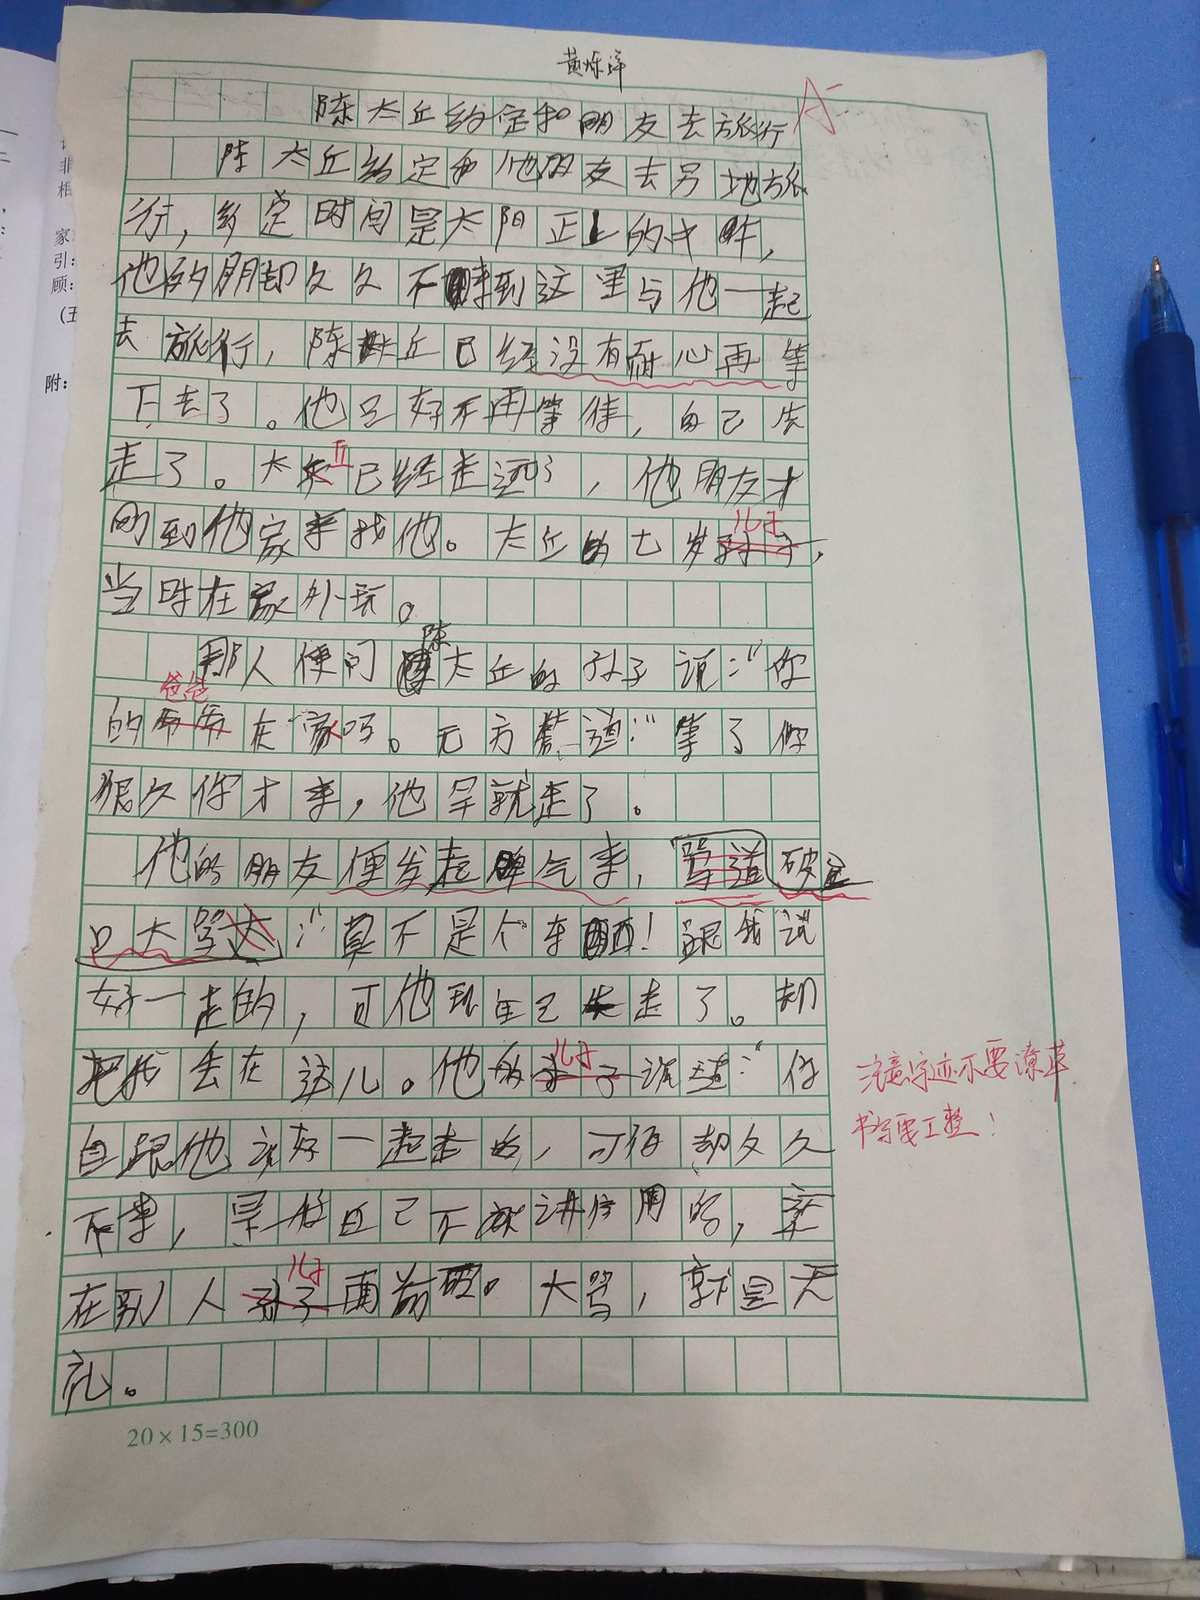 黄烁洋
A-
陈太丘约定和朋友去旅行
陈太丘约定和他朋友去另地旅
行，约定时间是太阳正上的中午，
他的朋却久久不来到这里与他一起
去旅行，陈太丘已经没有耐心再等
下去了。他只好不再等待，自己先
走了。太丘已经走远了，他朋友才
刚到他家来找他。太丘的七岁儿子，
当时在家外玩。
那人便问陈太丘的孙子说：“你
的爸爸在家吗。元方答道：“等了你
很久你才来，他早就走了。
他的朋友便发起脾气来，骂道破
口大骂：“真不是个东西！跟我说
好一走的，可他现自己先走了。却
把我丢在这儿。他的儿子说道：“你
自跟他说好一起走的，可你却久久
不来，是你自己不讲信用的，
在别人儿子面前大骂，就是无
礼。
注意字迹不要潦草
书写要工整！
20×15=300
家
引：
顾：
附：